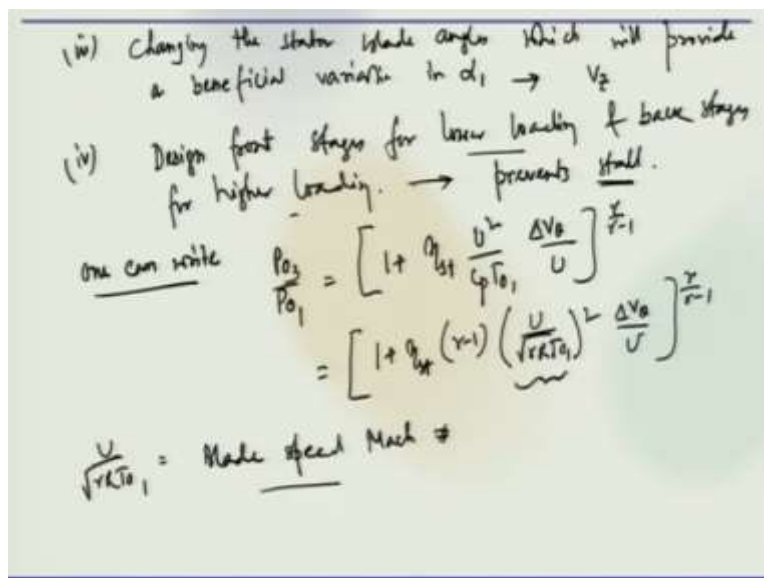 (iii) Changing the stator blade angles which will provide
a beneficial variation in α₁ → V_z
(iv) Design front stages for lower loading & back stages
for higher loading. → prevents stall.
one can write P₀₃/P₀₁ = [1 + η_st U²/(C_pT₀₁) ΔV_θ/U]^(γ/(γ-1))
= [1 + η_st (γ-1) (U/√(γRT₀₁))² ΔV_θ/U]^(γ/(γ-1))
U/√(γRT₀₁) = Blade speed Mach #